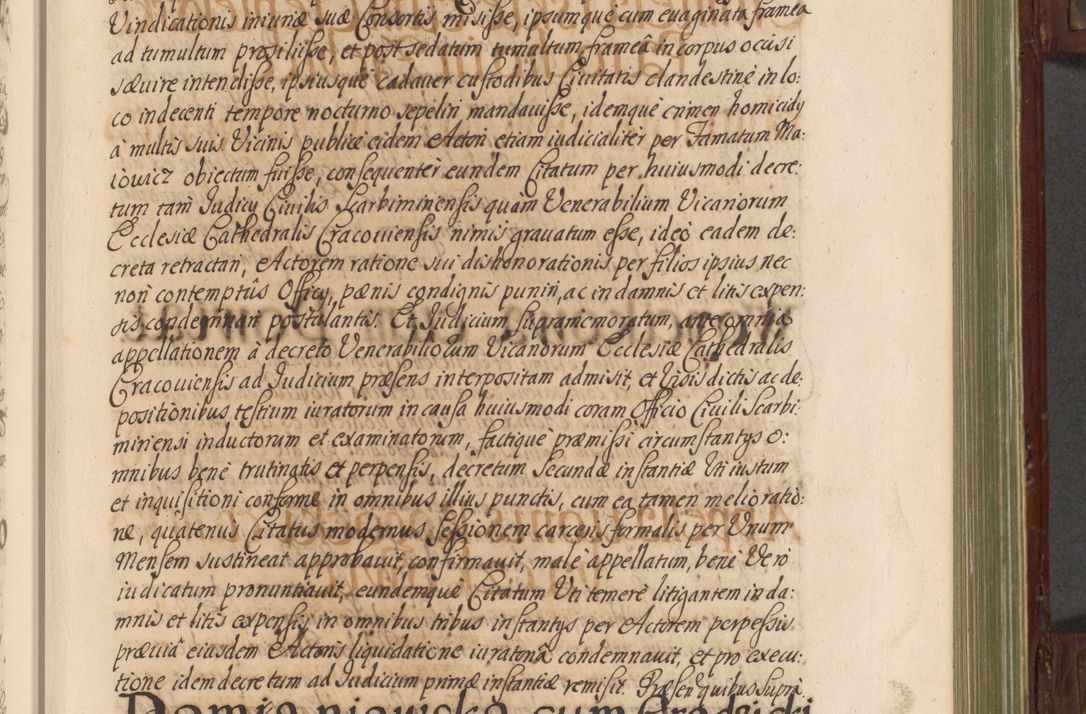 Vindicationis iniuriæ suæ Consortis misisse, ipsumque cum euaginata framea
ad tumultum prosiliisse, et post sedatum tumultum frameâ in corpus occisi
sæuire intendisse, ipsiusque cadauer custodibus Ciuitatis clandestine in lo:
co indecenti tempore nocturno sepeliri mandauisse, idemque crimen homicidÿ
à multis suis Vicinis publice eidem Actori etiam iudicialiter per Famatum Ma:
iowicz obiectum fuisse, consequenter eundem Citatum per huiusmodi decre:
tum tam Judicÿ Ciuilis Scarbiminensis quàm Venerabilium Vicariorum
Ecclesiæ Cathedralis Cracouiensis nimis grauatum esse, ideo eadem de:
creta retractari, Actorem ratione sui dishonorationis per filios ipsius nec
non contemptûs Officÿ, pænis condignis puniri, ac in damnis et litis expen:
sis condemnari postulantis. Et Judicium supramemoratum, ante omnia
appellationem à decreto Venerabiliorum Vicariorum Ecclesiæ Cathedralis
Cracouiensis ad Judicium præsens interpositam admisit, et Visis dictis ac de:
positionibus testium iuratorum in causa huiusmodi coram Officio Ciuili Scarbi:
minensi inductorum et examinatorum, factique præmissi circumstantÿs o:
mnibus bene trutinatis et perpensis, decretum secundæ instantiæ Uti iustum
et inquisitioni conforme in omnibus illius punctis, cum ea tamen melioratio:
ne, quatenus Citatus modernus Sessionem carceris formalis per Unum
Mensem sustineat approbauit, confirmauit, male appellatum, bene Vero
iudicatum pronuntiauit, eundemque Citatum Uti temere litigantem in da:
mnis et litis expensis in omnibus tribus instantÿs per Actorem perpessis
præuiâ eiusdem Actoris liquidatione iuratoriâ condemnauit, et pro execu:
tione idem decretum ad Judicium primæ instantiæ remisit. Præsen quibus supra
Damianiowska cum Grodzicki